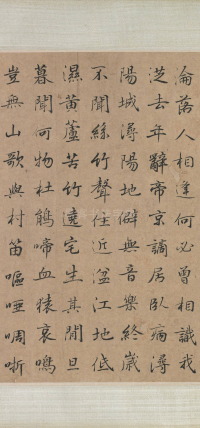 淪落人相逢何必曾相識我
從去年辭帝京謫居臥病潯
陽城潯陽地僻無音樂終歲
不聞絲竹聲住近湓江地低
濕黃蘆苦竹遶宅生其間旦
暮聞何物杜鵑啼血猿哀鳴
豈無山歌與村笛嘔啞啁哳